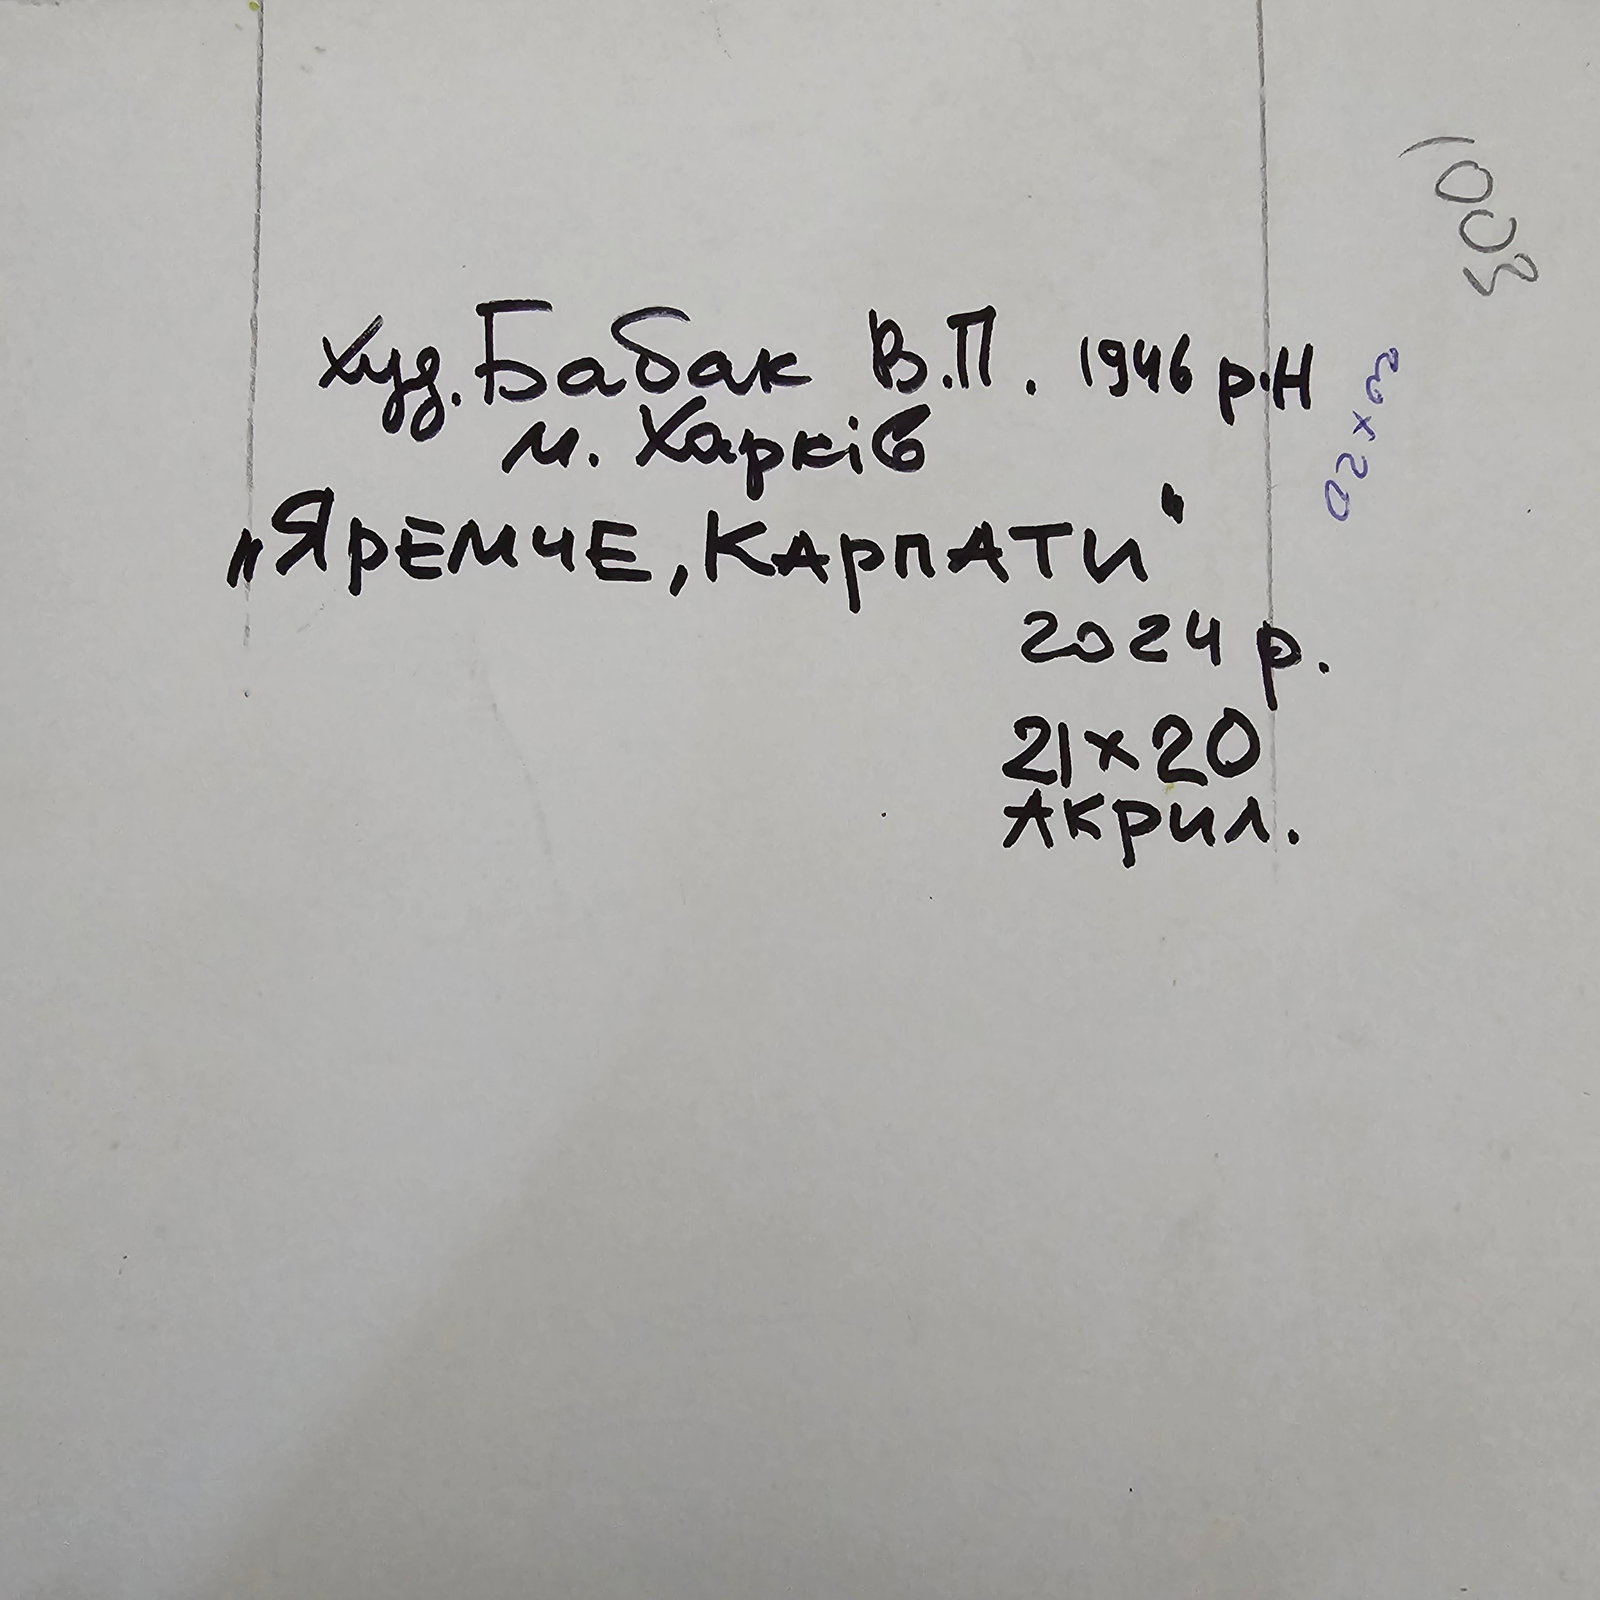 худ. Бабак В.П. 1946 р.Н
м. Харків
„Яремче, Карпати“
2024 р.
21х20
Акрил.
1003